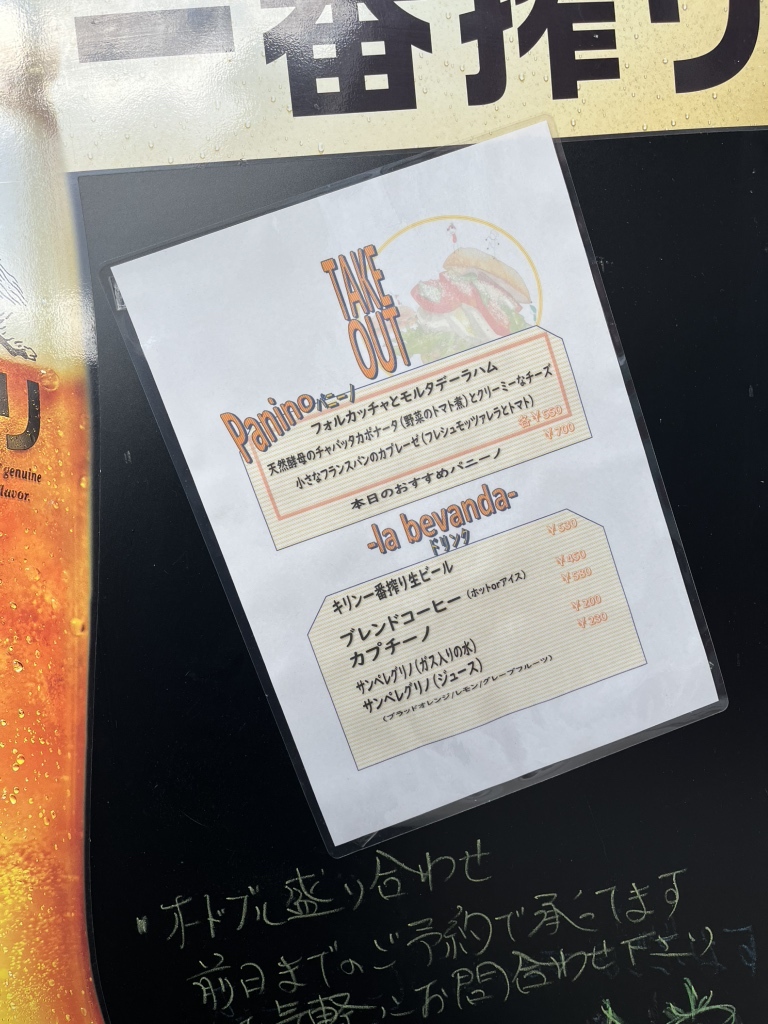 一番搾り
リ
genuine
flavor.
TAKE
OUT
Panino パニーノ
フォルカッチャとモルタデーラハム
天然酵母のチャバッタカポナータ(野菜のトマト煮)とクリーミーなチーズ
小さなフランスパンのカプレーゼ(フレシュモッツァレラとトマト)
各¥650
本日のおすすめパニーノ ¥700
-la bevanda-
ドリンク
キリン一番搾り生ビール ¥530
ブレンドコーヒー (ホットorアイス) ¥450
カプチーノ ¥530
サンペレグリノ(ガス入りの水) ¥200
サンペレグリノ(ジュース) ¥230
(ブラッドオレンジ/レモン/グレープフルーツ)
・オードブル盛り合わせ
前日までのご予約で承ってます
気軽にお問合わせ下さい